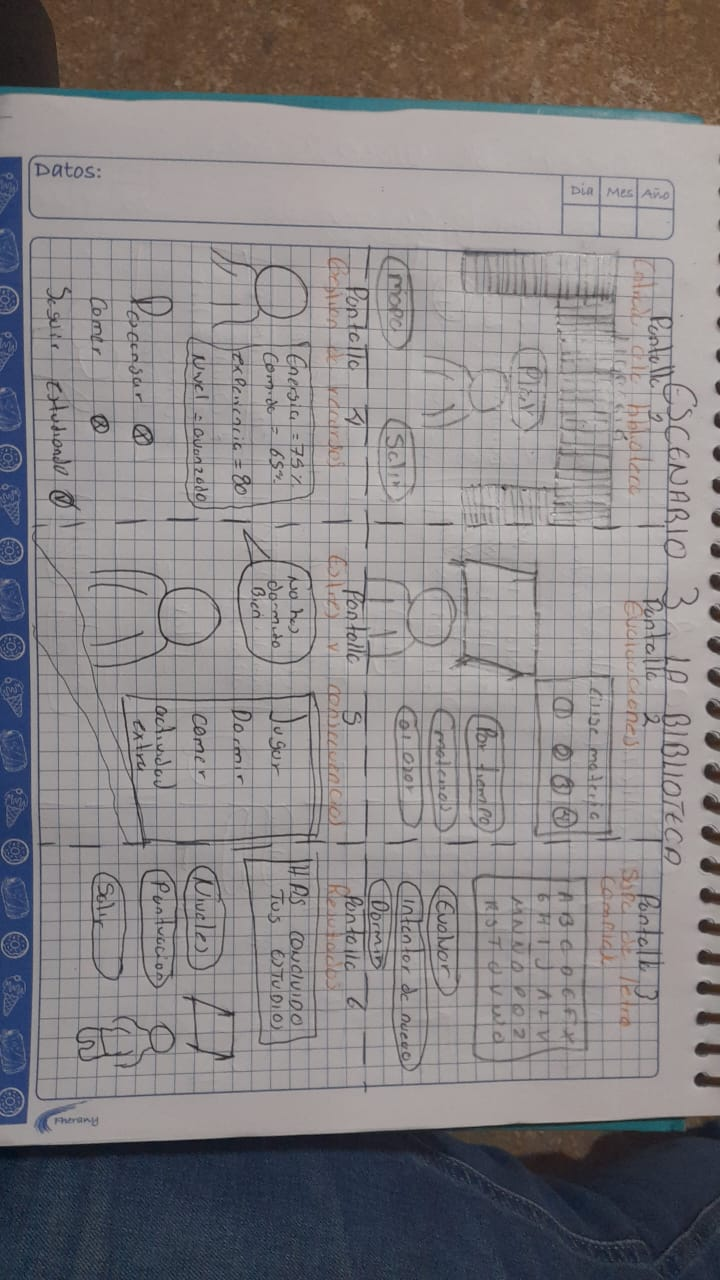 Año
Mes
Dia
Datos:
ESCENARIO 3 LA BIBLIOTECA
Pantalla 1
Play
Mapa
Salir
Pantalla 2
Evaluaciones
elije materia
Por tiempo
materias
al azar
Pantalla 3
Sopa de letra
A B C D E F X
G H I J K L V
M N Ñ O P Q Z
R S T U V W O
Evaluar
Intentar de nuevo
Dormir
Pantalla 4
Gestion de recursos
Energia = 75%
Comida = 65%
experiencia = 80
Nivel = avanzado
Descansar
Comer
Seguir estudiando
Pantalla 5
Estres y consecuencias
No has
dormido
Bien
Jugar
Dormir
comer
actividad
extra
Pantalla 6
Resultados
HAS CONCLUIDO
TUS ESTUDIOS
Niveles
Puntuacion
Salir
Fherany